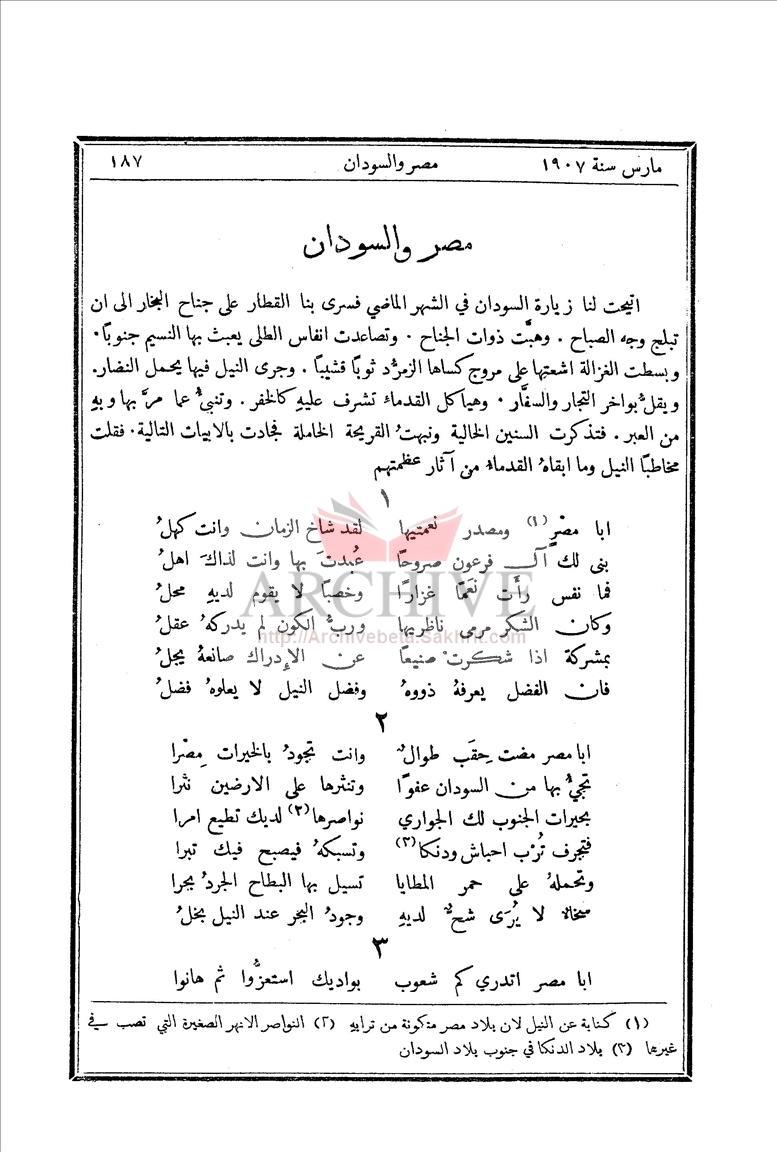 مارس سنة ١٩٠٧ مصر والسودان ١٨٧
مصر والسودان
اتيحت لنا زيارة السودان في الشهر الماضي فسرى بنا القطار على جناح البخار الى ان
تبلج وجه الصباح . وهبَّت ذوات الجناح . وتصاعدت انفاس الطلى يعبث بها النسيم جنوبًا .
وبسطت الغزالة اشعتها على مروج كساها الزمرُّد ثوبًا قشيبًا . وجرى النيل فيها يحمل النضار .
ويقلُّ بواخر التجار والسفَّار . وهياكل القدماء تشرف عليهِ كالخفر . وتنبئُ عما مرَّ بها وبهِ
من العبر . فتذكرت السنين الخالية ونبهتُ القريحة الخاملة فجادت بالابيات التالية . فقلت
مخاطبًا النيل وما ابقاهُ القدماء من آثار عظمتهم
١
ابا مصْرٍ (١) ومصدر نعمتيها لقد شاخ الزمان وانت كهلُ
بنى لك آل فرعون صروحًا عُبدتَ بها وانت لذاك اهلُ
فما نفس رأَت نَعَمًا غزارًا وخصبًا لا يقوم لديهِ محلُ
وكان الشكر مرمى ناظريها وربُّ الكون لم يدركهُ عقلُ
بمشركة اذا شكرتْ صنيعًا عن الإدراك صانعهُ يجلُ
فان الفضل يعرفهُ ذووهُ وفضل النيل لا يعلوهُ فضلُ
٢
ابا مصر مضت حِقَب طوالٌ وانت تجودُ بالخيرات مِصْرا
تجيءُ بها من السودان عفوًا وتنثرها على الارضين نثرا
بحيرات الجنوب لك الجواري نواصرها (٢) لديك تطيع امرا
فتجرف تُرْب احباش ودنكا (٣) وتسبكهُ فيصبح فيك تبرا
وتحملهُ على حمر المطايا تسيل بها البطاح الجردُ بحرا
سخاءٌ لا يُرَى شحٌّ لديهِ وجودُ البحر عند النيل بخلُ
٣
ابا مصر اتدري كم شعوب بواديك استعزُّوا ثم هانوا
(١) كناية عن النيل لان بلاد مصر متكونة من ترابهِ (٢) النواصر الانهر الصغيرة التي تصب في
غيرها (٣) بلاد الدنكا في جنوب بلاد السودان
ARCHIVE
http://Archivebeta.Sakhrit.com